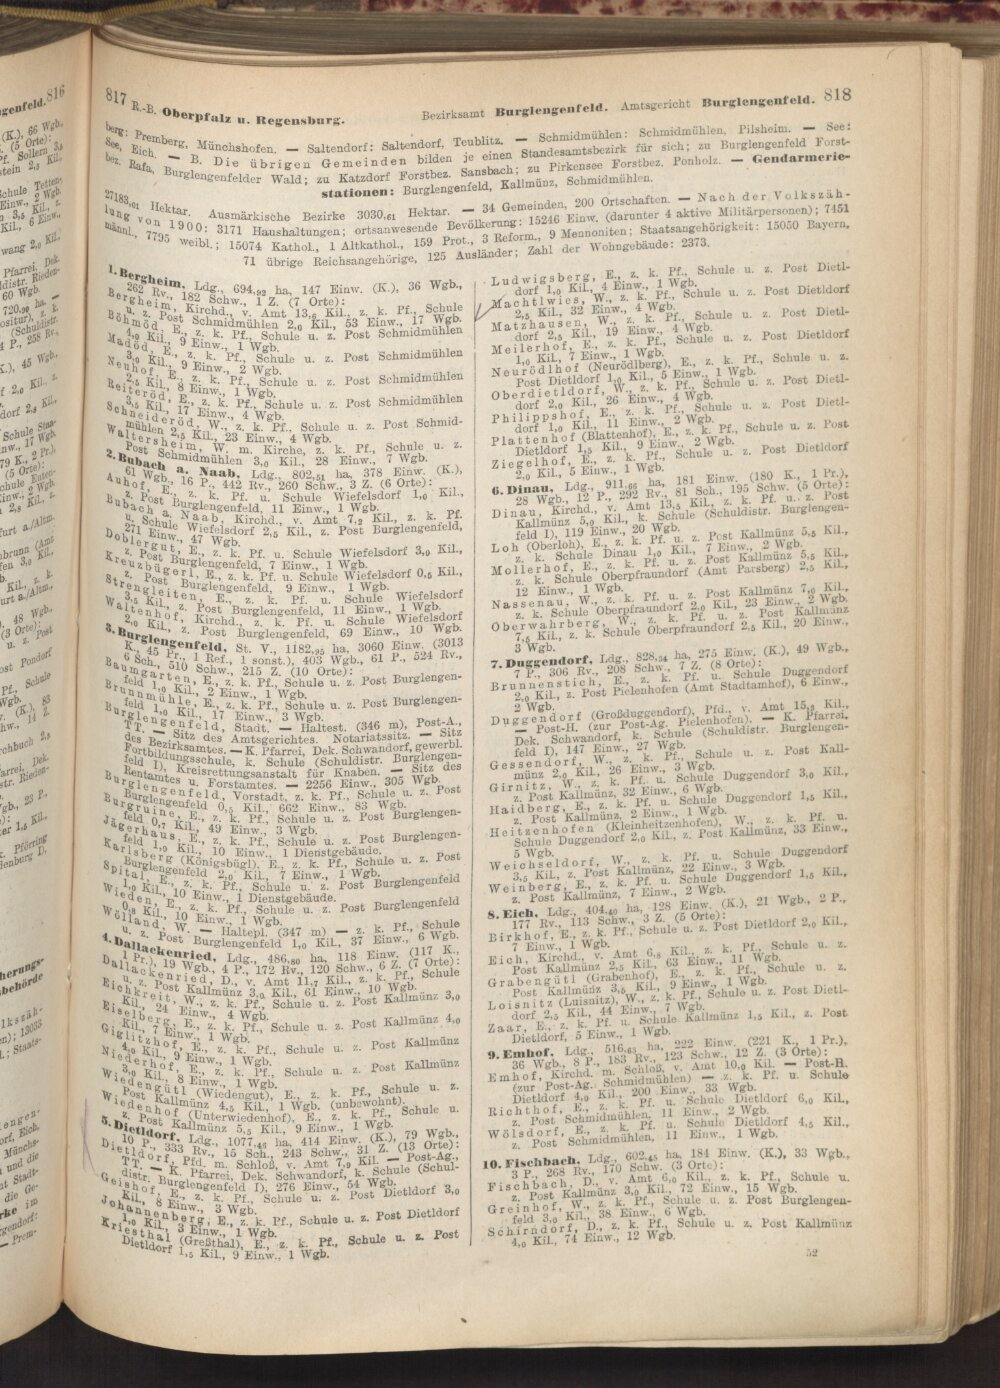 817 R.-B. Oberpfalz u. Regensburg.
Bezirksamt Burglengenfeld. Amtsgericht Burglengenfeld. 818
berg: Premberg, Münchshofen. — Saltendorf: Saltendorf, Teublitz. — Schmidmühlen: Schmidmühlen, Pilsheim. — See:
See, Eich. — B. Die übrigen Gemeinden bilden je einen Standesamtsbezirk für sich; zu Burglengenfeld Forst-
bez. Rafa, Burglengenfelder Wald; zu Katzdorf Forstbez. Sansbach; zu Pirkensee Forstbez. Ponholz. — Gendarmerie-
stationen: Burglengenfeld, Kallmünz, Schmidmühlen.
27183,01 Hektar. Ausmärkische Bezirke 3030,61 Hektar. — 34 Gemeinden, 200 Ortschaften. — Nach der Volkszäh-
lung von 1900: 3171 Haushaltungen; ortsanwesende Bevölkerung: 15246 Einw. (darunter 4 aktive Militärpersonen); 7451
männl., 7795 weibl.; 15074 Kathol., 1 Altkathol., 159 Prot., 3 Reform., 9 Mennoniten; Staatsangehörigkeit: 15050 Bayern,
71 übrige Reichsangehörige, 125 Ausländer; Zahl der Wohngebäude: 2373.
1. Bergheim, Ldg., 694,92 ha, 147 Einw. (K.), 36 Wgb.,
262 Rv., 182 Schw., 1 Z. (7 Orte):
Bergheim, Kirchd., v. Amt 13,6 Kil., z. k. Pf., Schule
u. z. Post Schmidmühlen 2,0 Kil., 53 Einw., 17 Wgb.
Böhmöd, E., z. k. Pf., Schule u. z. Post Schmidmühlen
4,0 Kil., 9 Einw., 1 Wgb.
Madöd, E., z. k. Pf., Schule u. z. Post Schmidmühlen
3,0 Kil., 9 Einw., 2 Wgb.
Neuhof, E., z. k. Pf., Schule u. z. Post Schmidmühlen
2,5 Kil., 8 Einw., 1 Wgb.
Reiteröd, E., z. k. Pf., Schule u. z. Post Schmidmühlen
3,5 Kil., 17 Einw., 4 Wgb.
Schneideröd, W., z. k. Pf., Schule u. z. Post Schmid-
mühlen 2,5 Kil., 23 Einw., 4 Wgb.
Waltersheim, W. m. Kirche, z. k. Pf., Schule u. z.
Post Schmidmühlen 3,0 Kil., 28 Einw., 7 Wgb.
2. Bubach a. Naab, Ldg., 802,51 ha, 378 Einw. (K.),
61 Wgb., 16 P., 442 Rv., 260 Schw., 3 Z. (6 Orte):
Auhof, E., z. k. Pf. u. Schule Wiefelsdorf 1,0 Kil.,
z. Post Burglengenfeld, 11 Einw., 1 Wgb.
Bubach a. Naab, Kirchd., v. Amt 7,2 Kil., z. k. Pf.
u. Schule Wiefelsdorf 2,5 Kil., z. Post Burglengenfeld,
271 Einw., 47 Wgb.
Doblergut, E., z. k. Pf. u. Schule Wiefelsdorf 3,0 Kil.,
z. Post Burglengenfeld, 7 Einw., 1 Wgb.
Kreuzbügerl, E., z. k. Pf. u. Schule Wiefelsdorf 0,5 Kil.,
z. Post Burglengenfeld, 9 Einw., 1 Wgb.
Strengleiten, E., z. k. Pf. u. Schule Wiefelsdorf
3,5 Kil., z. Post Burglengenfeld, 11 Einw., 1 Wgb.
Waltenhof, Kirchd., z. k. Pf. u. Schule Wiefelsdorf
2,0 Kil., z. Post Burglengenfeld, 69 Einw., 10 Wgb.
3. Burglengenfeld, St. V., 1182,95 ha, 3060 Einw. (3013
K., 45 Pr., 1 Ref., 1 sonst.), 403 Wgb., 61 P., 524 Rv.,
6 Sch., 510 Schw., 215 Z. (10 Orte):
Baumgarten, E., z. k. Pf., Schule u. z. Post Burglengen-
feld 1,0 Kil., 2 Einw., 1 Wgb.
Brunnmühle, E., z. k. Pf., Schule u. z. Post Burglengen-
feld 1,0 Kil., 17 Einw., 3 Wgb.
Burglengenfeld, Stadt. — Haltest. (346 m), Post-A.,
TT. — Sitz des Amtsgerichtes. Notariatssitz. — Sitz
des Bezirksamtes. — K. Pfarrei, Dek. Schwandorf, gewerbl.
Fortbildungsschule, k. Schule (Schuldistr. Burglengen-
feld I), Kreisrettungsanstalt für Knaben. — Sitz des
Rentamtes u. Forstamtes. — 2256 Einw., 305 Wgb.
Burglengenfeld, Vorstadt, z. k. Pf., Schule u. z. Post
Burglengenfeld 0,5 Kil., 662 Einw., 83 Wgb.
Burgruine, E., z. k. Pf., Schule u. z. Post Burglengen-
feld 0,7 Kil., 49 Einw., 3 Wgb.
Jägerhaus, E., z. k. Pf., Schule u. z. Post Burglengen-
feld 1,0 Kil., 10 Einw., 1 Dienstgebäude.
Karlsberg (Königsbügl), E., z. k. Pf., Schule u. z. Post
Burglengenfeld 2,0 Kil., 7 Einw., 1 Wgb.
Spital, E., z. k. Pf., Schule u. z. Post Burglengenfeld
1,0 Kil., 10 Einw., 1 Dienstgebäude.
Wieden, E., z. k. Pf., Schule u. z. Post Burglengenfeld
0,8 Kil., 10 Einw., 1 Wgb.
Wölland, W. — Haltepl. (347 m) — z. k. Pf., Schule
u. z. Post Burglengenfeld 1,0 Kil., 37 Einw., 6 Wgb.
4. Dallackenried, Ldg., 486,80 ha, 118 Einw. (117 K.,
1 Pr.), 19 Wgb., 4 P., 172 Rv., 120 Schw., 6 Z. (7 Orte):
Dallackenried, D., v. Amt 11,7 Kil., z. k. Pf., Schule
u. z. Post Kallmünz 3,0 Kil., 61 Einw., 10 Wgb.
Eichkreit, W., z. k. Pf., Schule u. z. Post Kallmünz 3,0
Kil., 24 Einw., 4 Wgb.
Eiselberg, E., z. k. Pf., Schule u. z. Post Kallmünz 4,0
Kil., 7 Einw., 1 Wgb.
Giglitzhof, E., z. k. Pf., Schule u. z. Post Kallmünz
4,0 Kil., 9 Einw., 1 Wgb.
Niederhof, E., z. k. Pf., Schule u. z. Post Kallmünz
3,0 Kil., 8 Einw., 1 Wgb.
Wiedengütl (Wiedengut), E., z. k. Pf., Schule u. z.
Post Kallmünz 4,5 Kil., 1 Wgb. (unbewohnt).
Wiedenhof (Unterwiedenhof), E., z. k. Pf., Schule u.
z. Post Kallmünz 5,5 Kil., 9 Einw., 1 Wgb.
5. Dietldorf, Ldg., 1077,46 ha, 414 Einw. (K.), 79 Wgb.,
10 P., 333 Rv., 15 Sch., 243 Schw., 31 Z. (13 Orte):
Dietldorf, Pfd. m. Schloß, v. Amt 7,9 Kil. — Post-Ag.,
TT. — K. Pfarrei, Dek. Schwandorf, k. Schule (Schul-
distr. Burglengenfeld I), 276 Einw., 54 Wgb.
Geishof, E., z. k. Pf., Schule u. z. Post Dietldorf 3,0
Kil., 8 Einw., 3 Wgb.
Johannenberg, E., z. k. Pf., Schule u. z. Post Dietldorf
1,0 Kil., 3 Einw., 1 Wgb.
Kriesthal (Greßthal), E., z. k. Pf., Schule u. z. Post
Dietldorf 1,5 Kil., 9 Einw., 1 Wgb.
Ludwigsberg, E., z. k. Pf., Schule u. z. Post Dietl-
dorf 1,0 Kil., 4 Einw., 1 Wgb.
Machtlwies, W., z. k. Pf., Schule u. z. Post Dietldorf
2,5 Kil., 32 Einw., 4 Wgb.
Matzhausen, W., z. k. Pf., Schule u. z. Post Dietl-
dorf 2,5 Kil., 19 Einw., 4 Wgb.
Meilerhof, E., z. k. Pf., Schule u. z. Post Dietldorf
1,0 Kil., 7 Einw., 1 Wgb.
Neurödlhof (Neurödlberg), E., z. k. Pf., Schule u. z.
Post Dietldorf 1,0 Kil., 5 Einw., 1 Wgb.
Oberdietldorf, W., z. k. Pf., Schule u. z. Post Dietl-
dorf 2,0 Kil., 26 Einw., 4 Wgb.
Philippshof, E., z. k. Pf., Schule u. z. Post Dietl-
dorf 1,0 Kil., 11 Einw., 2 Wgb.
Plattenhof (Blattenhof), E., z. k. Pf., Schule u. z. Post
Dietldorf 1,5 Kil., 9 Einw., 2 Wgb.
Ziegelhof, E., z. k. Pf., Schule u. z. Post Dietldorf
2,0 Kil., 5 Einw., 1 Wgb.
6. Dinau, Ldg., 911,66 ha, 181 Einw. (180 K., 1 Pr.),
28 Wgb., 12 P., 292 Rv., 81 Sch., 195 Schw. (5 Orte):
Dinau, Kirchd., v. Amt 13,5 Kil., z. k. Pf. u. z. Post
Kallmünz 5,0 Kil., k. Schule (Schuldistr. Burglengen-
feld I), 119 Einw., 20 Wgb.
Loh (Oberloh), E., z. k. Pf. u. z. Post Kallmünz 5,5 Kil.,
z. k. Schule Dinau 1,0 Kil., 7 Einw., 2 Wgb.
Mollerhof, E., z. k. Pf. u. z. Post Kallmünz 5,5 Kil.,
z. k. Schule Oberpfraundorf (Amt Parsberg) 2,5 Kil.,
12 Einw., 1 Wgb.
Nassenau, W., z. k. Pf. u. z. Post Kallmünz 7,0 Kil.,
z. k. Schule Oberpfraundorf 2,0 Kil., 23 Einw., 2 Wgb.
Oberwahrberg, W., z. k. Pf. u. z. Post Kallmünz
7,5 Kil., z. k. Schule Oberpfraundorf 2,5 Kil., 20 Einw.,
3 Wgb.
7. Duggendorf, Ldg., 828,34 ha, 275 Einw. (K.), 49 Wgb.,
7 P., 306 Rv., 208 Schw., 7 Z. (8 Orte):
Brunnenstich, E., z. k. Pf. u. Schule Duggendorf
2,0 Kil., z. Post Pielenhofen (Amt Stadtamhof), 6 Einw.,
2 Wgb.
Duggendorf (Großduggendorf), Pfd., v. Amt 15,8 Kil.,
— Post-H. (zur Post-Ag. Pielenhofen). — K. Pfarrei,
Dek. Schwandorf, k. Schule (Schuldistr. Burglengen-
feld I), 147 Einw., 27 Wgb.
Gessendorf, W., z. k. Pf., Schule u. z. Post Kall-
münz 2,0 Kil., 26 Einw., 3 Wgb.
Girnitz, W., z. k. Pf. u. Schule Duggendorf 3,0 Kil.,
z. Post Kallmünz, 32 Einw., 6 Wgb.
Haidberg, E., z. k. Pf. u. Schule Duggendorf 1,5 Kil.,
z. Post Kallmünz, 2 Einw., 1 Wgb.
Heitzenhofen (Kleinheitzenhofen), W., z. k. Pf. u.
Schule Duggendorf 2,0 Kil., z. Post Kallmünz, 33 Einw.,
5 Wgb.
Weichseldorf, W., z. k. Pf. u. Schule Duggendorf
3,5 Kil., z. Post Kallmünz, 22 Einw., 3 Wgb.
Weinberg, E., z. k. Pf. u. Schule Duggendorf 1,5 Kil.,
z. Post Kallmünz, 7 Einw., 2 Wgb.
8. Eich, Ldg., 404,40 ha, 128 Einw. (K.), 21 Wgb., 2 P.,
177 Rv., 113 Schw., 3 Z. (5 Orte):
Birkhof, E., z. k. Pf., Schule u. z. Post Dietldorf 2,0 Kil.,
7 Einw., 1 Wgb.
Eich, Kirchd., v. Amt 6,8 Kil., z. k. Pf., Schule u. z.
Post Kallmünz 2,5 Kil., 63 Einw., 11 Wgb.
Grabengütl (Grabenhof), E., z. k. Pf., Schule u. z.
Post Kallmünz 3,5 Kil., 9 Einw., 1 Wgb.
Loisnitz (Luisnitz), W., z. k. Pf., Schule u. z. Post Dietl-
dorf 2,5 Kil., 44 Einw., 7 Wgb.
Zaar, E., z. k. Pf. u. Schule Kallmünz 1,5 Kil., z. Post
Dietldorf, 5 Einw., 1 Wgb.
9. Emhof, Ldg., 516,63 ha, 222 Einw. (221 K., 1 Pr.),
36 Wgb., 8 P., 183 Rv., 123 Schw., 12 Z. (3 Orte):
Emhof, Kirchd. m. Schloß, v. Amt 10,0 Kil. — Post-H.
(zur Post-Ag. Schmidmühlen) — z. k. Pf. u. Schule
Dietldorf 4,0 Kil., 200 Einw., 33 Wgb.
Richthof, E., z. k. Pf. u. Schule Dietldorf 6,0 Kil.,
z. Post Schmidmühlen, 11 Einw., 2 Wgb.
Wölsdorf, E., z. k. Pf. u. Schule Dietldorf 4,5 Kil.,
z. Post Schmidmühlen, 11 Einw., 1 Wgb.
10. Fischbach, Ldg., 602,45 ha, 184 Einw. (K.), 33 Wgb.,
3 P., 268 Rv., 170 Schw. (3 Orte):
Fischbach, D., v. Amt 6,0 Kil., z. k. Pf., Schule u.
z. Post Kallmünz 3,0 Kil., 72 Einw., 15 Wgb.
Greinhof, W., z. k. Pf., Schule u. z. Post Burglengen-
feld 3,0 Kil., 38 Einw., 6 Wgb.
Schirndorf, D., z. k. Pf., Schule u. z. Post Kallmünz
4,0 Kil., 74 Einw., 12 Wgb.
52